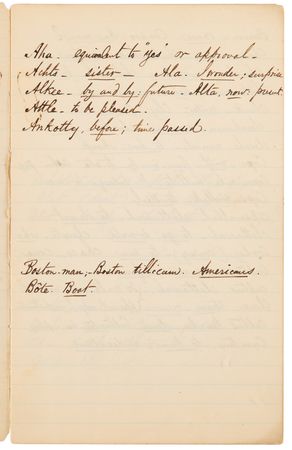 Aha. equivalent to "yes" or approval -
Achts - sister - Ala. Wonder; surprise
Alkee - by and by: future - Alta, now: present
Attle - to be pleased.
Ankotty, before; time passed.
Boston-man; - Boston tillicum. Americans.
Bōte. Boat.